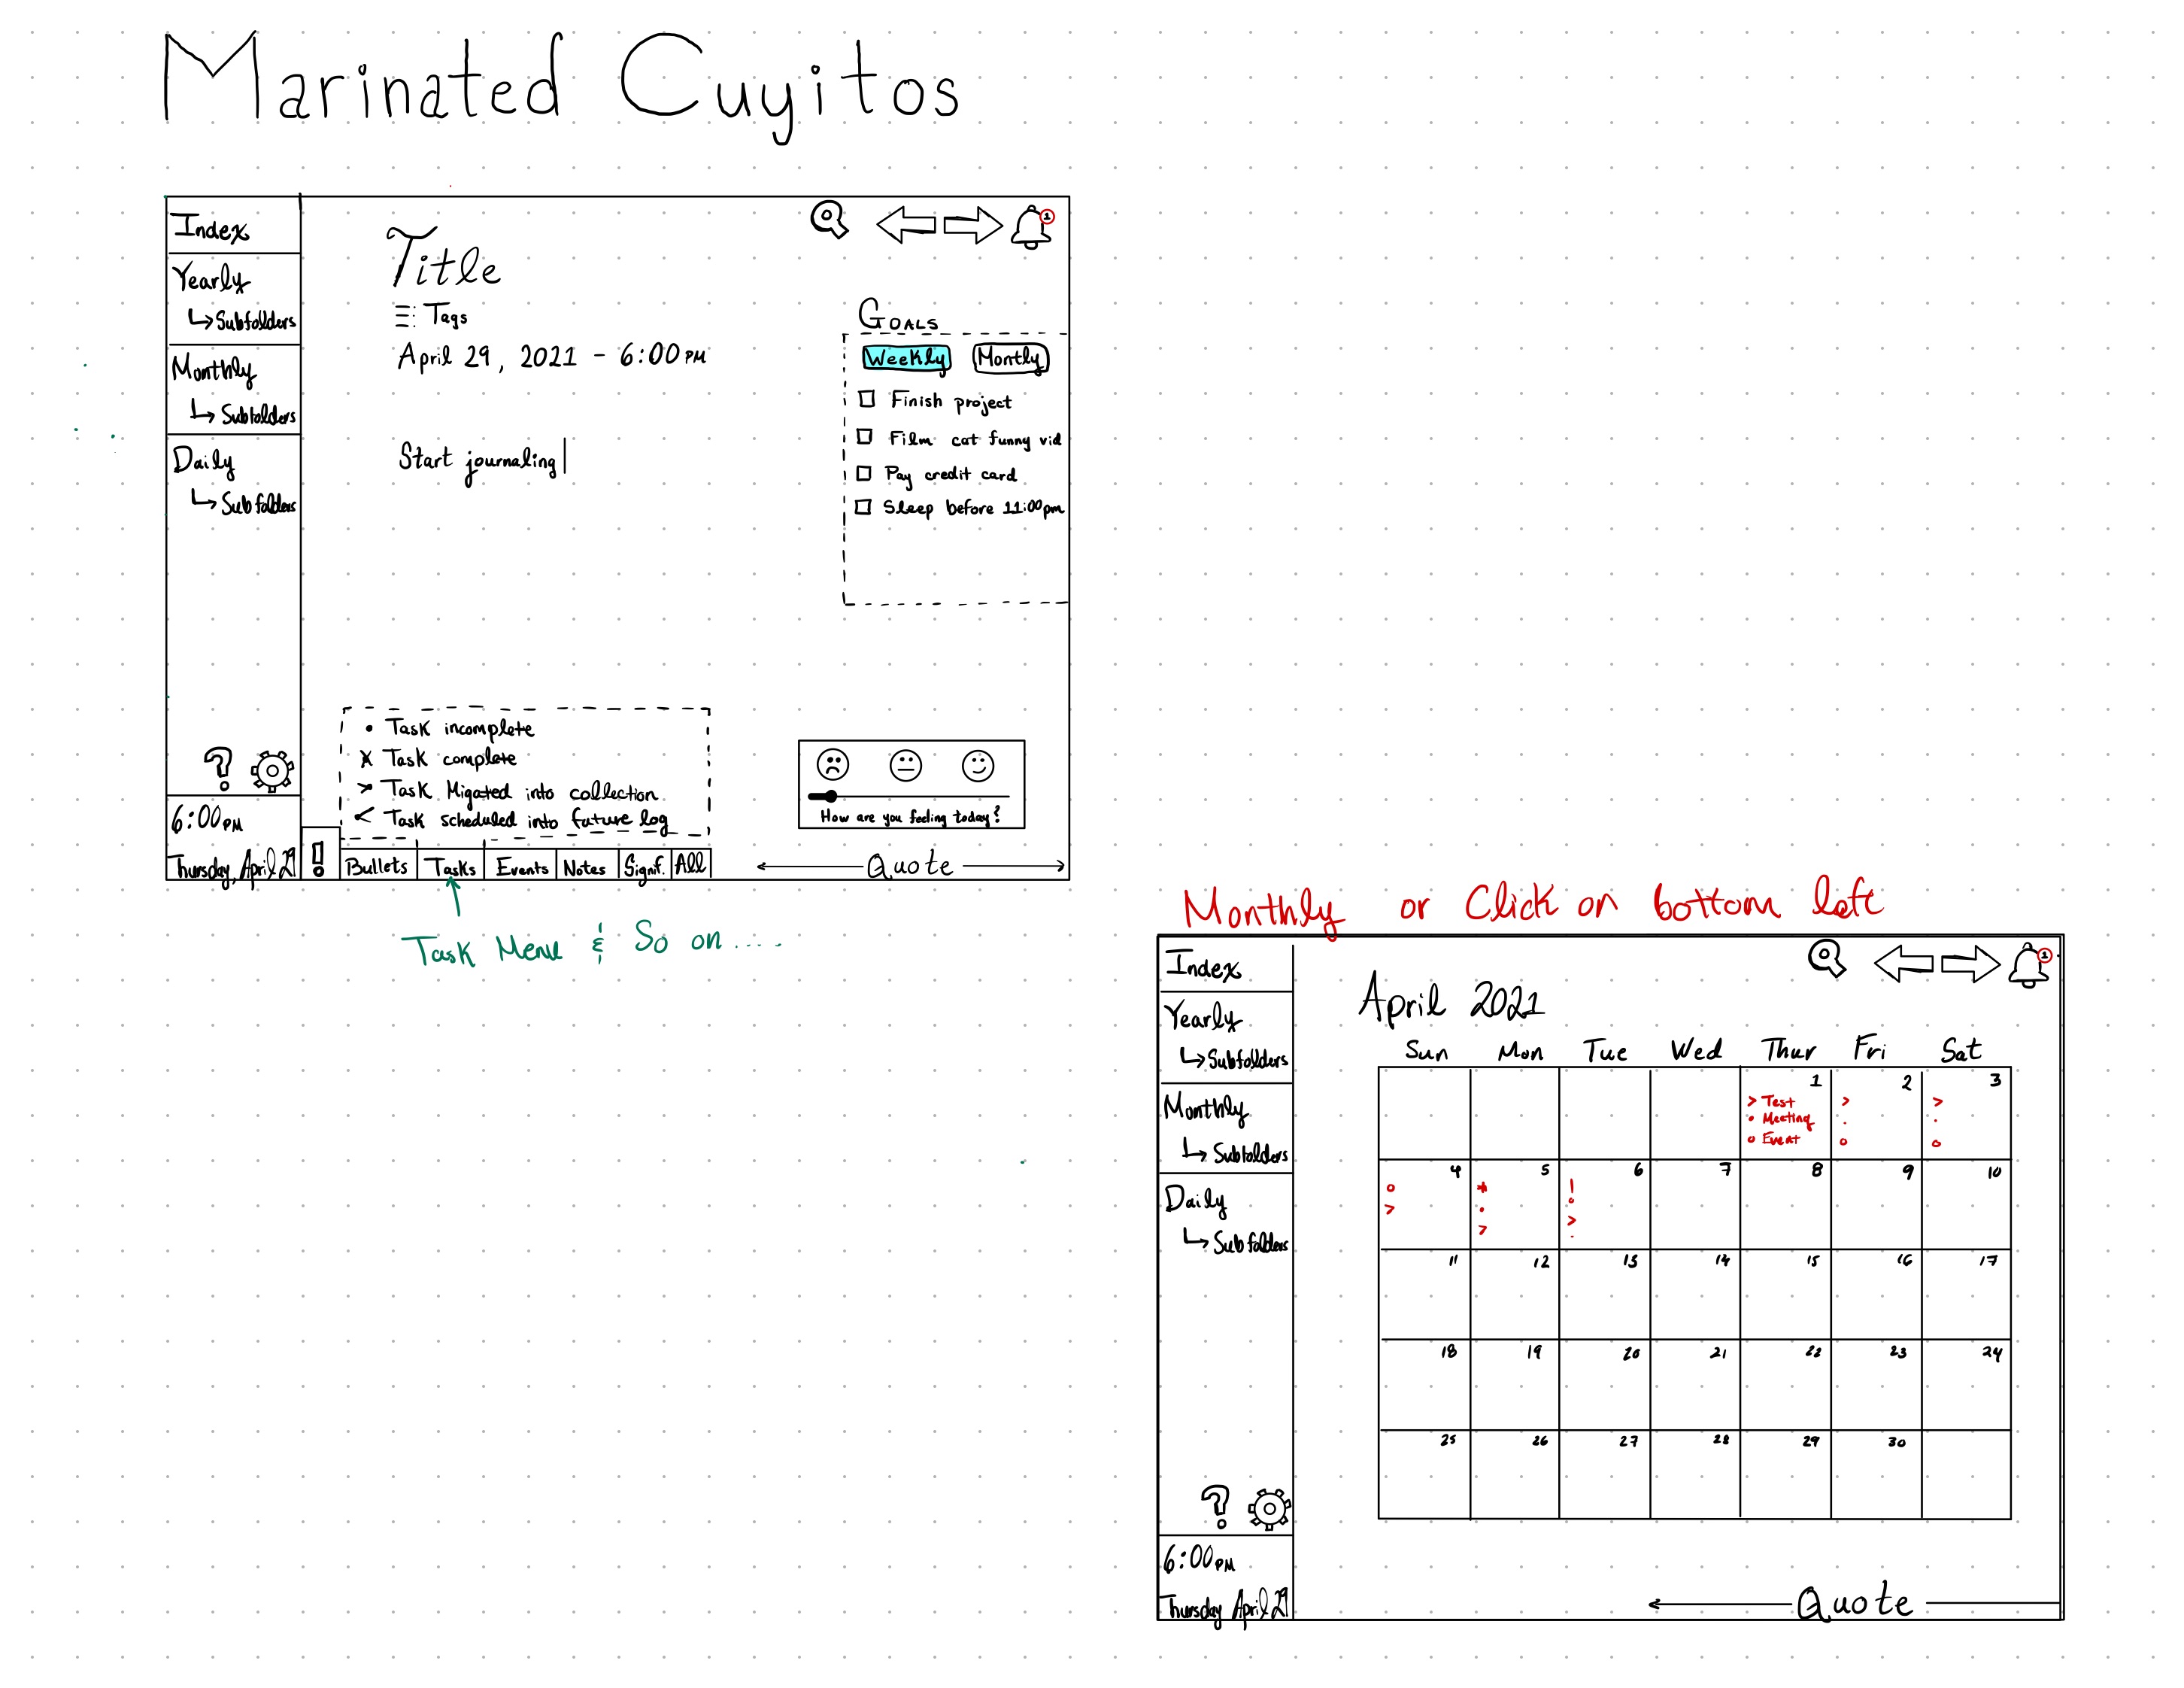 Marinated Cuyitos
Index
Yearly
↳Subfolders
Monthly
↳Subfolders
Daily
↳Subfolders
?
6:00PM
Thursday, April 29
Title
Tags
April 29, 2021 - 6:00 PM
Start journaling
1
GOALS
Weekly Montly
Finish project
Film cat funny vid
Pay credit card
Sleep before 11:00pm
• Task incomplete
x Task complete
> Task Migated into collection
< Task scheduled into future log
! Bullets Tasks Events Notes Signif. All
How are you feeling today?
Quote
Task Menu & So on ....
Monthly or Click on bottom left
Index
Yearly
↳Subfolders
Monthly
↳Subfolders
Daily
↳Subfolders
?
6:00PM
Thursday April 29
1
April 2021
Sun Mon Tue Wed Thur Fri Sat
1 2 3
> Test > >
• Meeting • •
o Event o o
4 5 6 7 8 9 10
o * !
> • o
> >
•
11 12 13 14 15 16 17
18 19 20 21 22 23 24
25 26 27 28 29 30
Quote